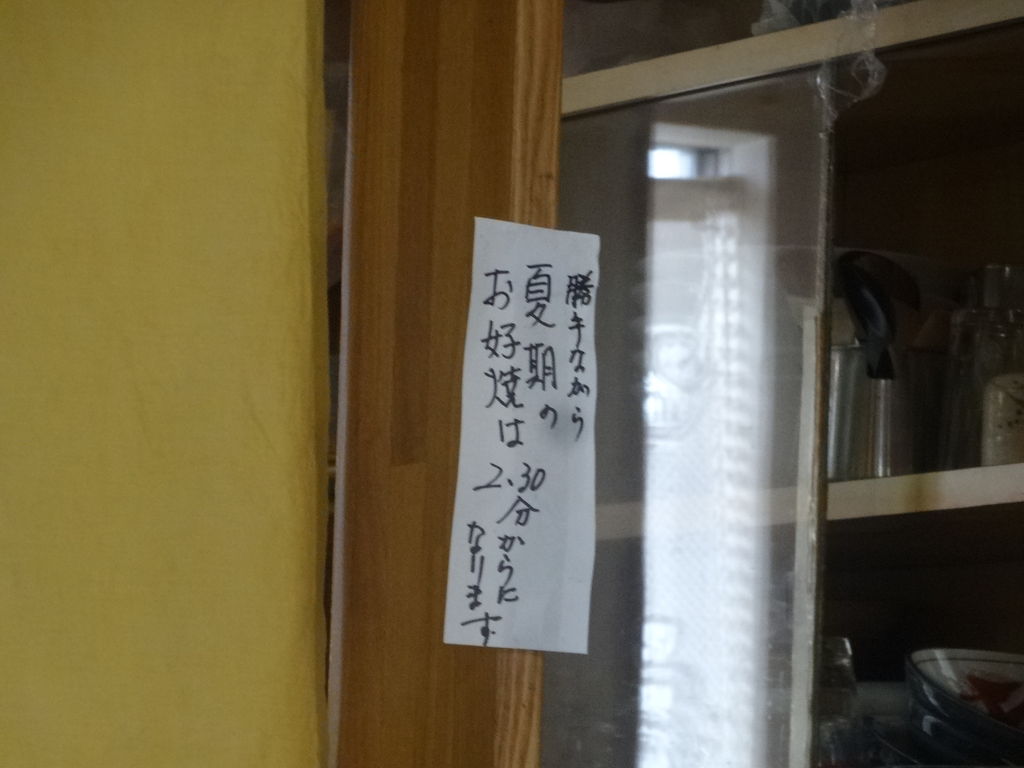 勝手なから
夏期の
お好焼は
2.30分からに
なります